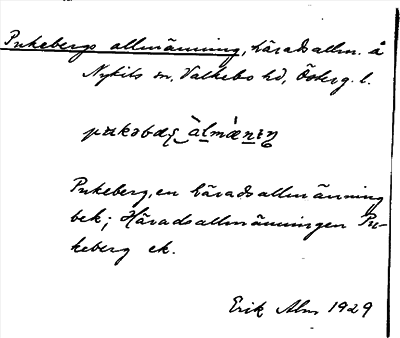 Pukebergs allmänning, häradsallm. å
Nykils sn, Valkebo hd, Österg. l.
pukəbæʂ àlmǽnɪŋ
Pukeberg, en häradsallmänning
bek; Häradsallmänningen Pu-
keberg ek.
Erik Alm 1929